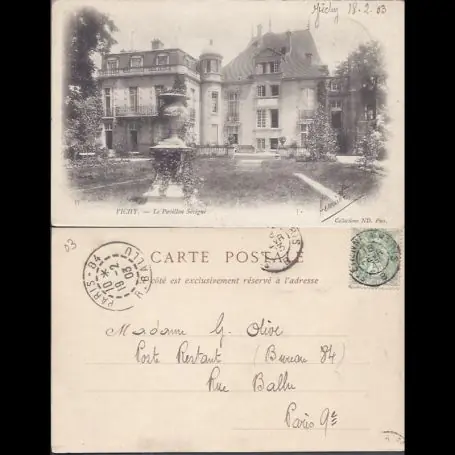 Vichy 18.2.03
VICHY. — Le Pavillon Sévigné
Collections ND. Phot.
03
CARTE POSTALE
côté est exclusivement réservé à l'adresse
PARIS-84
R. BALLU
10
19 -2
03
Madame G. Olive
Poste Restant (Bureau 84)
Rue Ballu
Paris 9e